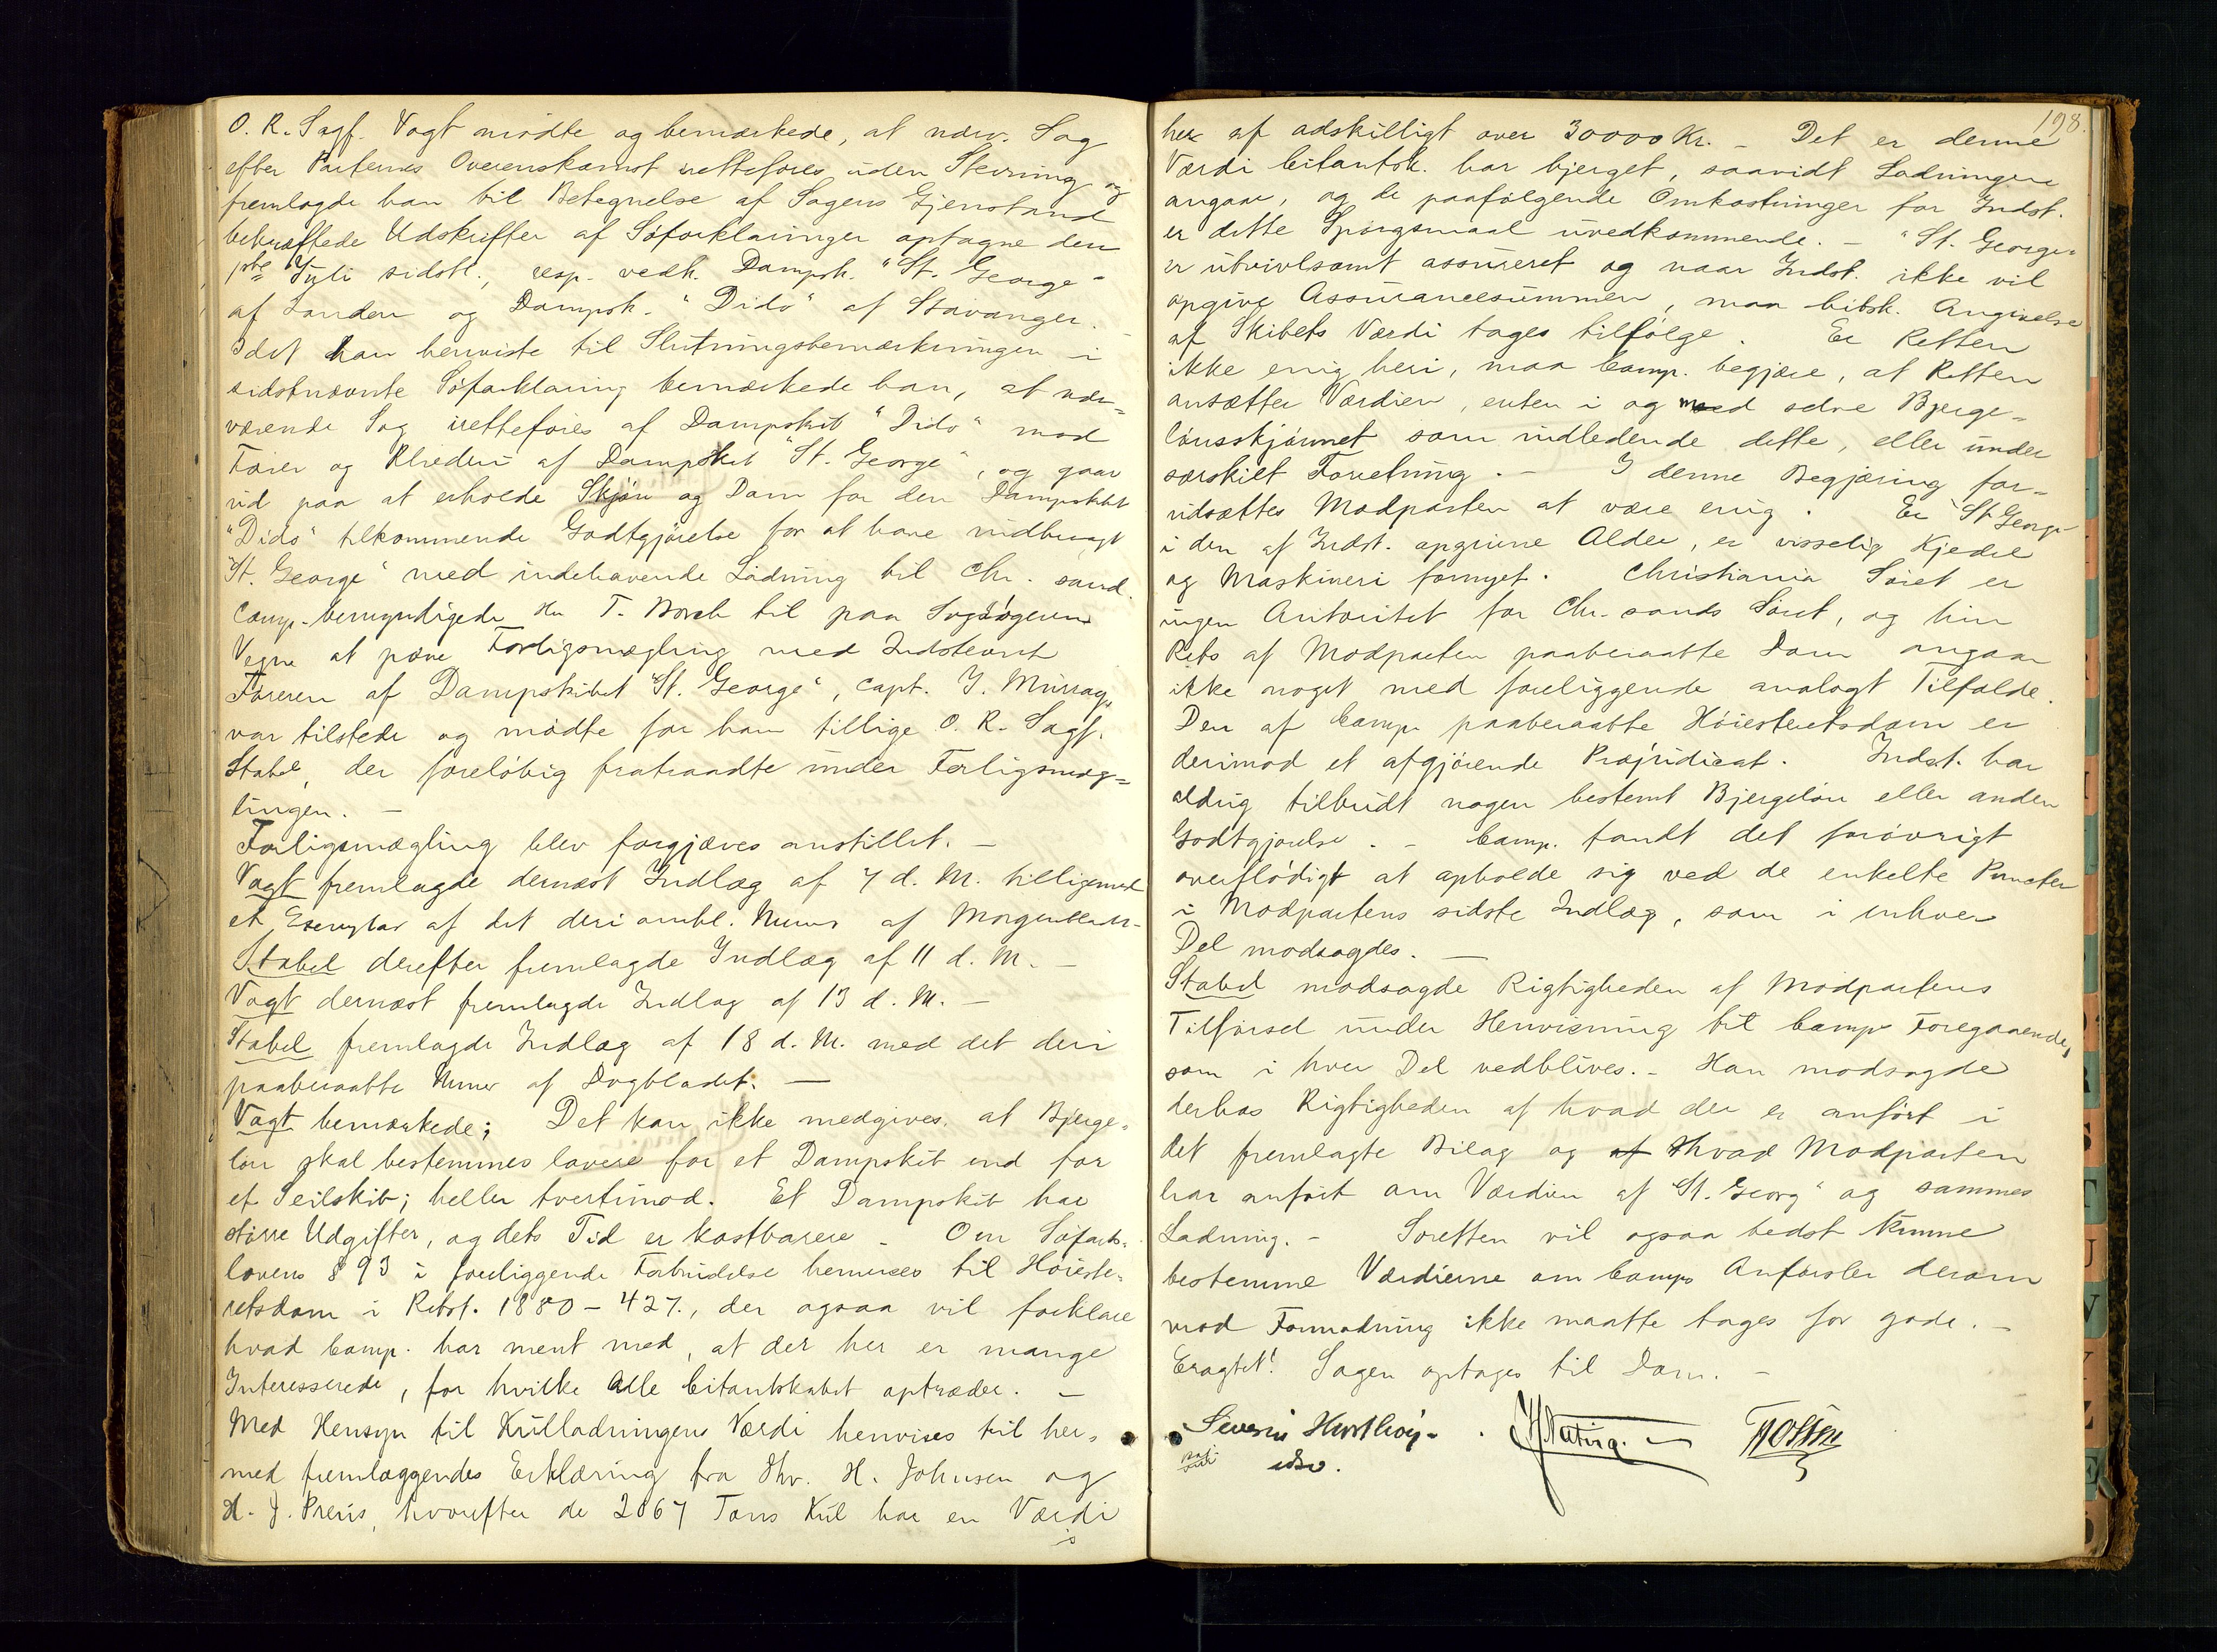 O. R. Sagf. Vogt mødte og bemærkede, at nærv. Sag
efter Parternes Overenskomst retteføres uden Stevning og
fremlagde han til Betegnelse af Sagens Gjenstand
bekræftede Udskrifter af Søforklaringer optagne den
1ste Juli sidstl., resp. vedk. Dampsk. "St. George"
af London og Dampsk. "Dido" af Stavanger.
Idet han henviste til Slutningsbemærkningen i
sidstnævnte Søforklaring bemærkede han, at nær=
værende Sag iretteføres af Dampskib "Dido" mod
Fører og Rhederi af Dampskib "St. George", og gaar
ud paa at erholde Skjøn og Dom for den Dampskibet
"Dido" tilkommende Godtgjørelse for at have indbragt
"St. George" med indehavende Ladning til Chr. sand.
Comp. bemyndigede Hr T. Borch til paa Sagsøgerens
Vegne at prøve Forligsmægling med Indstevnte
Føreren af Dampskibet "St. George", Capt. J. Murray,
var tilstede og mødte for ham tillige O. R. Sagf.
Stabel, der foreløbig fratraadte under Forligsmæg=
lingen. —
Forligsmægling blev forgjæves anstillet. —
Vogt fremlagde dernæst Indlæg af 7 d. M. tilligemed
et Exemplar af det deri omhl. Numer af Morgenbladet-
Stabel derefter fremlagde Indlæg af 11 d. M. —
Vogt dernæst fremlagde Indlæg af 13 d. M. —
Stabel fremlagde Indlæg af 18 d. M. med det deri
paaberaabte Numer af Dagbladet. —
Vogt bemærkede; Det kan ikke medgives, at Bjerge=
løn skal bestemmes lavere for et Dampskib end for
et Seilskib; heller tvertimod. Et Dampskib har
større Udgifter, og dets Tid er kostbarere – Om Søfarts=
lovens § 93 i foreliggende Forbindelse henvises til Høieste=
retsdom i Retst. 1880 – 427., der ogsaa vil forklare
hvad Comp. har ment med, at der her er mange
Interesserede, for hvilke Alle Citantskabet optræder. —
Med Hensyn til Kulladningens Værdi henvises til her=
med fremlæggendes Erklæring fra Hr. H. Johnsen og
H. J. Preus, hvorefter de 2067 Tons Kul har en Værdi
198.
her af adskilligt over 30000 Kr. – Det er denne
Værdi Citantsk. har bjerget, saavidt Ladningen
angaar, og de paafølgende Omkostninger for Indst.
er dette Spørgsmaal uvedkommende. – "St. George"
er utvivlsomt assureret og naar Indst. ikke vil
opgive Assurancesummen, maa Citsk. Angivelse
af Skibets Værdi tages tilfølge. Er Retten
ikke enig heri, maa Comp. begjære, at Retten
ansætter Værdien, enten i og med selve Bjerge=
lønsskjønnet som indledende dette, eller under
særskilt Forretning. – I denne Begjæring for=
udsættes Modparten at være enig. Er "St George"
i den af Indst. opgivne Alder, er visselig Kjedel
og Maskineri fornyet. Christiania Søret er
ingen Autoritet for Chr. sands Søret, og hin
Rets af Modparten paaberaabte Dom angaar
ikke noget med foreliggende analogt Tilfælde.
Den af Comp. paaberaabte Høiesteretsdom er
derimod et afgjørende Præjudicat. Indst. har
aldrig tilbudt nogen bestemt Bjergeløn eller anden
Godtgjørelse. – Comp. fandt det forøvrigt
overflødigt at opholde sig ved de enkelte Puncter
i Modpartens sidste Indlæg, som i enhver
Del modsagdes. —
Stabel modsagde Rigtigheden af Modpartens
Tilførsel under Henvisning til Comps Foregaaende,
som i hver Del vedblives. – Han modsagde
derhos Rigtigheden af hvad der er anført i
det fremlagte Bilag og af hvad Modparten
har anført om Værdien af "St. Georg" og sammes
Ladning. – Søretten vil ogsaa bedst kunne
bestemme Værdierne om Comps Anførsler derom
mod Formodning ikke maatte tages for gode. –
Eragtet! Sagen optages til Dom. –
Severin